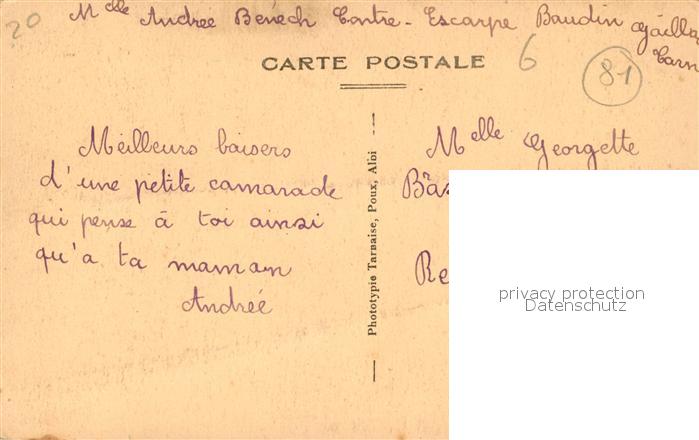 20
Melle Andrée Bénech Contre-Escarpe Baudin Gailla
Tarn
CARTE POSTALE
6
81
Meilleurs baisers
d'une petite camarade
qui pense à toi ainsi
qu'a ta maman
Andrée
Phototypie Tarnaise, Poux, Albi
Melle Georgette
privacy protection
Datenschutz